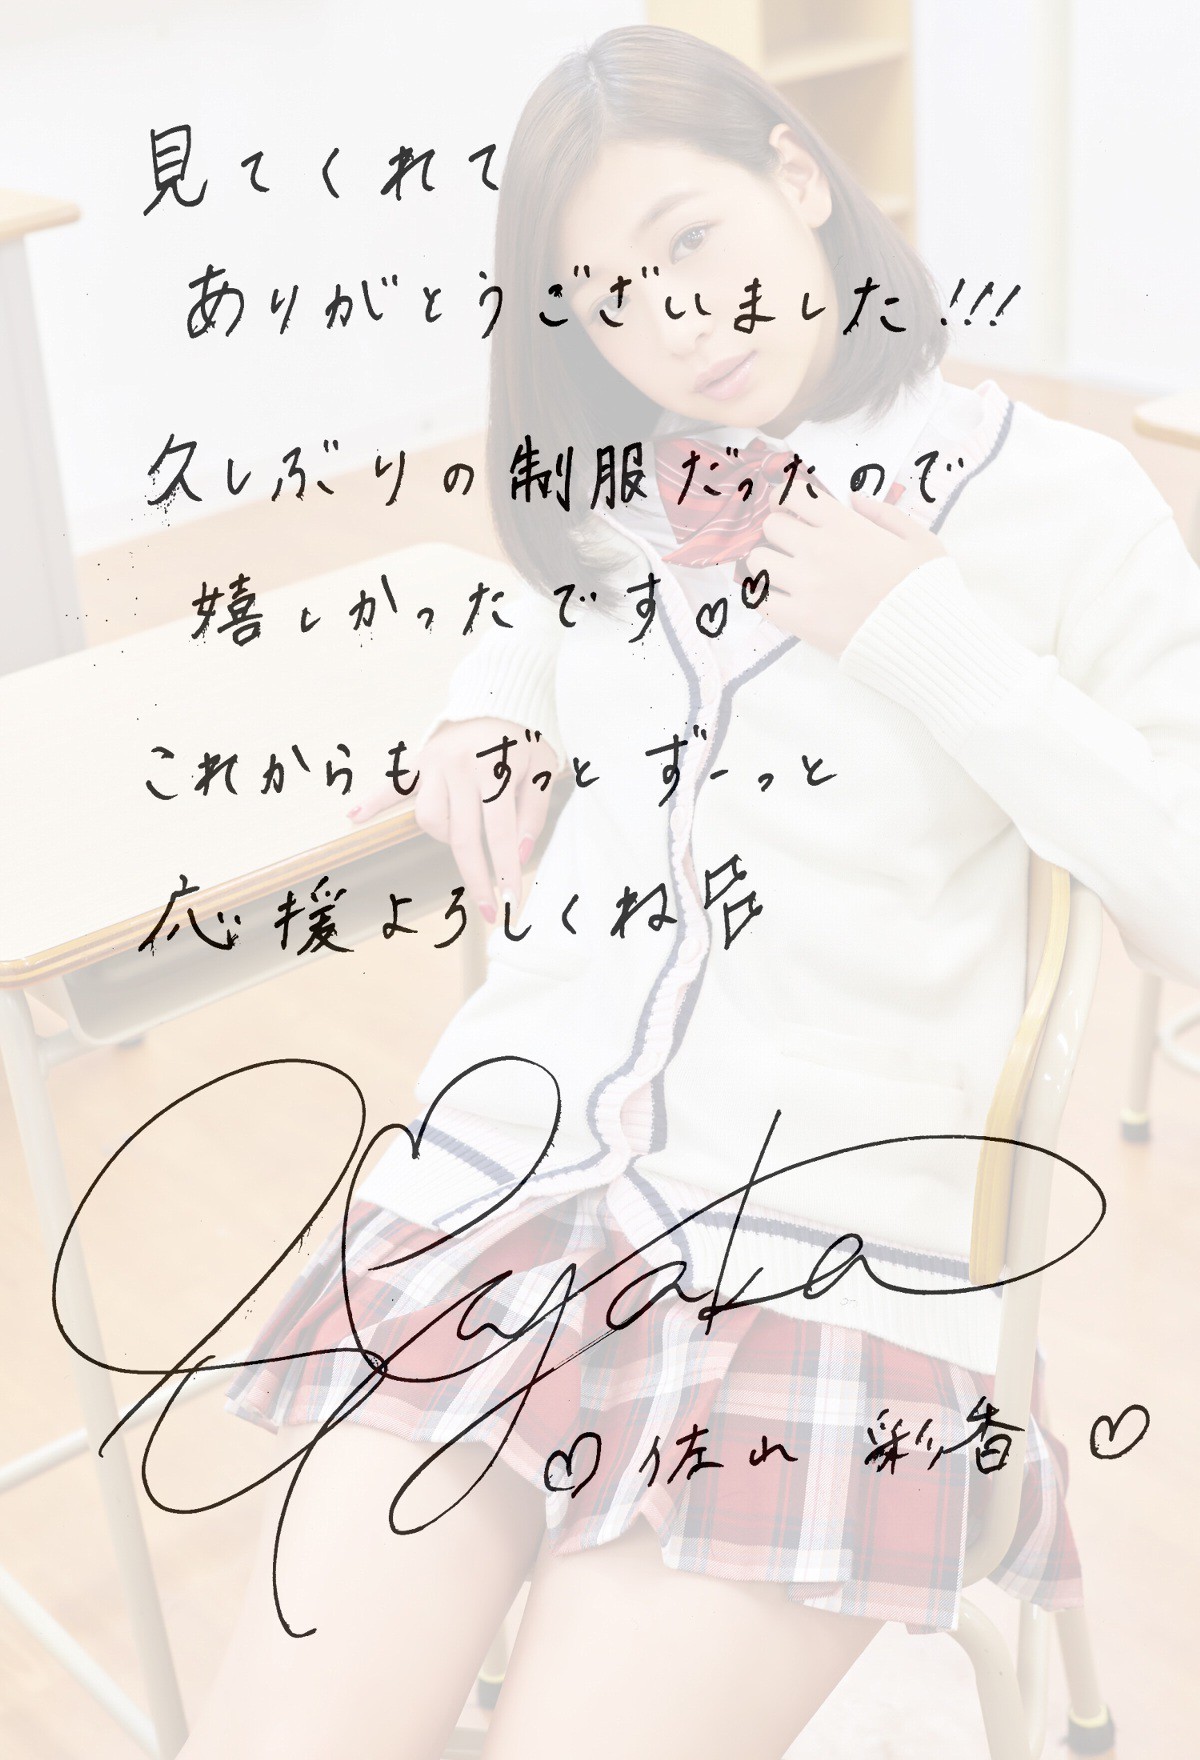 見てくれて
ありがとうございました!!!
久しぶりの制服だったので
嬉しかったです♡♡
これからも ずっと ずーっと
応援よろしくね
Ayaka
♡佐山 彩香♡